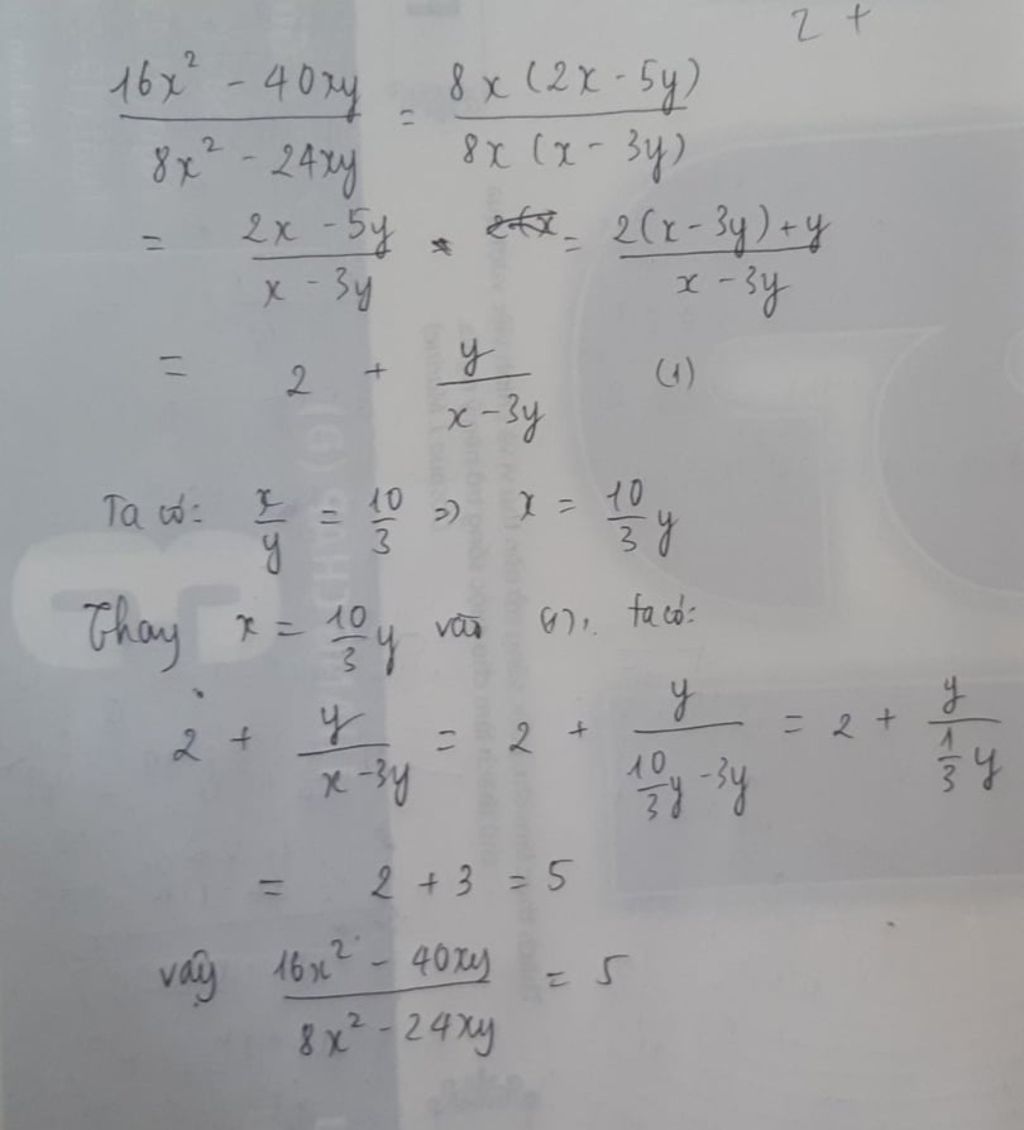 2 +
16x² - 40xy / 8x² - 24xy = 8x (2x - 5y) / 8x (x - 3y)
= 2x - 5y / x - 3y = 2(x - 3y) + y / x - 3y
= 2 + y / x - 3y (1)
Ta có: x/y = 10/3 => x = 10/3 y
Thay x = 10/3 y vào (1), ta có:
2 + y / x - 3y = 2 + y / 10/3 y - 3y = 2 + y / 1/3 y
= 2 + 3 = 5
vậy 16x² - 40xy / 8x² - 24xy = 5